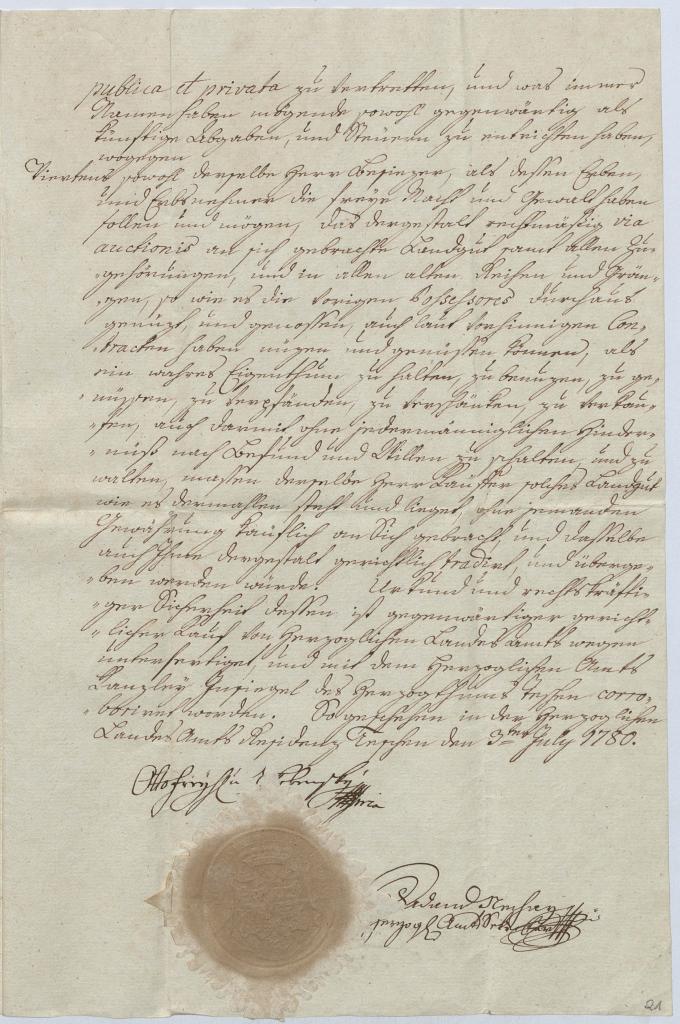 publica et privata zu vertretten, und was immer
Namen haben mögende sowohl gegenwärtig als
künftige Abgaben, und Steuern zu entrichten haben,
wogegen
Viertens sowohl derselbe Herr Besiezer, als dessen Erben,
und Erbsnehmer die freye Macht und Gewalt haben
sollen und mögen, das dergestalt rechtmässig via
auctionis an sich gebrachte Landgut samt allen Zu-
-gehörungen, und in allen alten Reihen und Grän-
-zen, so wie es die vorigen Possessores durchaus
genuzt, und genossen, auch laut vorhinnigen Con-
-tracten haben nüzen und genüssen können, als
ein wahres Eigenthum zu halten, zu benuzen, zu ge-
-nüssen, zu verpfänden, zu verschänken, zu verkau-
-fen, auch darmit ohne jedermänniglichen Hinder-
-nuß nach Befund und Willen zu schalten, und zu
walten, massen derselbe Herr Kauffer solches Landgut
wie es dermahlen steht und lieget, ohne jemanden
Gewährung käuflich an Sich gebracht, und dasselbe
auch Ihme dergestalt gerichtlich tradirt, und überge-
-ben worden würde. Urkund und rechtskräfti-
-ger Sicherheit dessen ist gegenwärtiger gericht-
-licher Kauf von Herzoglichen Landes Amts wegen
unterfertiget, und mit dem Herzoglichen Amts
Kanzley Insiegel des Herzogthums Teschen corro-
-boriret worden. So geschehen in der Herzoglichen
Landes Amts Residenz Teschen den 3ten July 1780.
Otto
Herzogl Amts
21